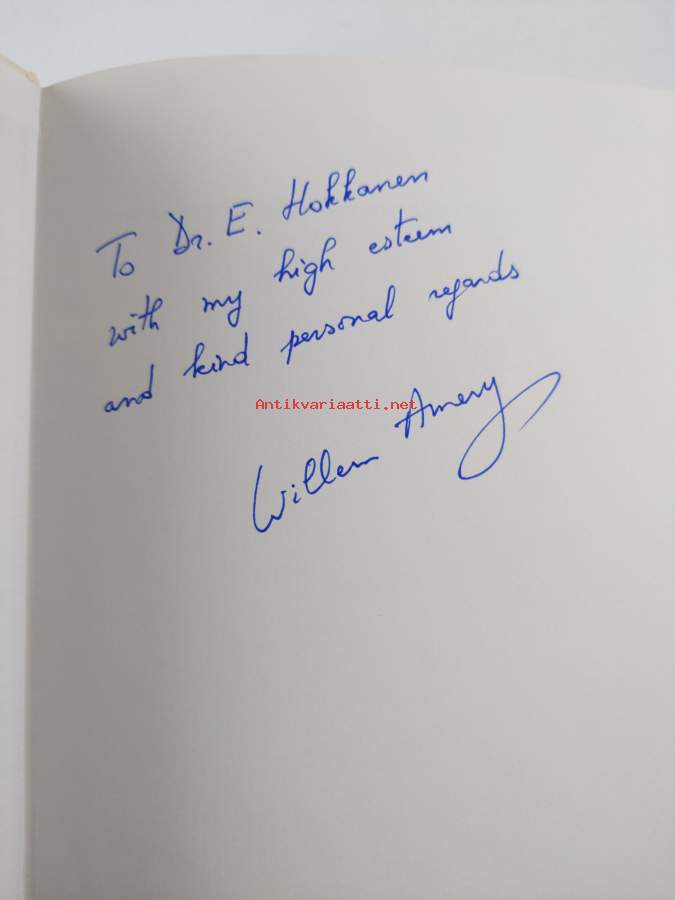 To Dr. E. Hokkanen
with my high esteem
and kind personal regards
Antikvariaatti.net
Willem Amery